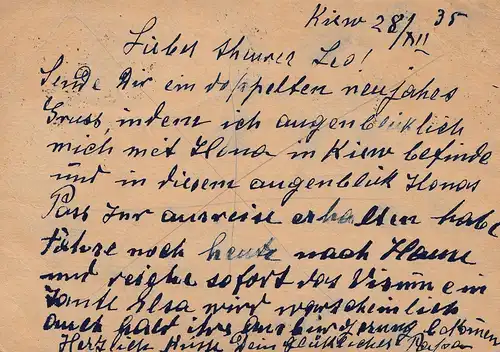 Kiew 28/XII 35
Liebes theurer Leo!
Sende Dir ein doppelten neujahrs
Gruss, indem ich augenblicklich
mich met Ilona in Kiew befinde
und in diesem augenblick Ilonas
Pass zur ausreise erhalten habe
fahre noch heute nach Hause
und reiche sofort das Visum ein
Tante Elsa wird warscheinlich
auch bald ihre bekomen
Herzlich Küsst Dein glückliches